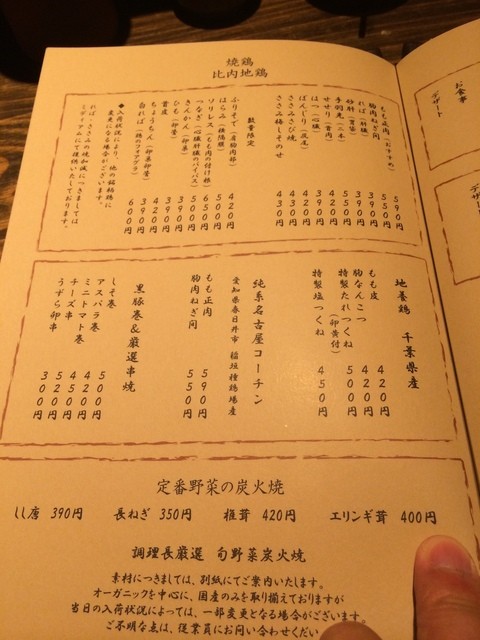 焼鶏
比内地鶏
もも正肉(おすすめ) 590円
胸肉ねぎ間 550円
ればー(肝臓) 390円
砂肝(胃袋) 390円
手羽先(二本) 550円
せせり(首肉) 420円
はつ(心臓) 390円
ぼんじり(尾尻) 420円
ささみさび焼 430円
ささみ梅しそのせ 430円
数量限定
ふりそで(肩胸肉部) 420円
はらみ(横隔膜) 500円
ソリレス(もも肉の付け根) 650円
つなぎ(心臓肝臓のパイプ) 500円
きんかん(卵巣) 550円
ひも(卵管) 390円
背皮 390円
ちょうちん(卵巣卵管) 420円
白ればー(鶏のフォアグラ) 390円
600円
◆入荷状況により、他の銘柄鶏に
変更になる場合がございます。
ればー・ささみの焼加減につきましては
ミディアムにて提供いたしております。
地養鶏 千葉県産
もも皮 420円
胸なんこつ 420円
特製たれつくね(卵黄付) 500円
特製塩つくね 450円
純系名古屋コーチン
愛知県春日井市 稲垣種鶏場産
もも正肉 590円
胸肉ねぎ間 550円
黒豚巻&厳選串焼
しそ巻 500円
アスパラ巻 420円
ミニトマト巻 450円
チーズ串 520円
うずら卵串 300円
定番野菜の炭火焼
しし唐 390円 長ねぎ 350円 椎茸 420円 エリンギ茸 400円
調理長厳選 旬野菜炭火焼
素材につきましては、別紙にてご案内いたします。
オーガニックを中心に、国産のみを取り揃えておりますが
当日の入荷状況によっては、一部変更となる場合がございます。
ご不明な点は、従業員にお問い合わせくだい
お食事
デザート